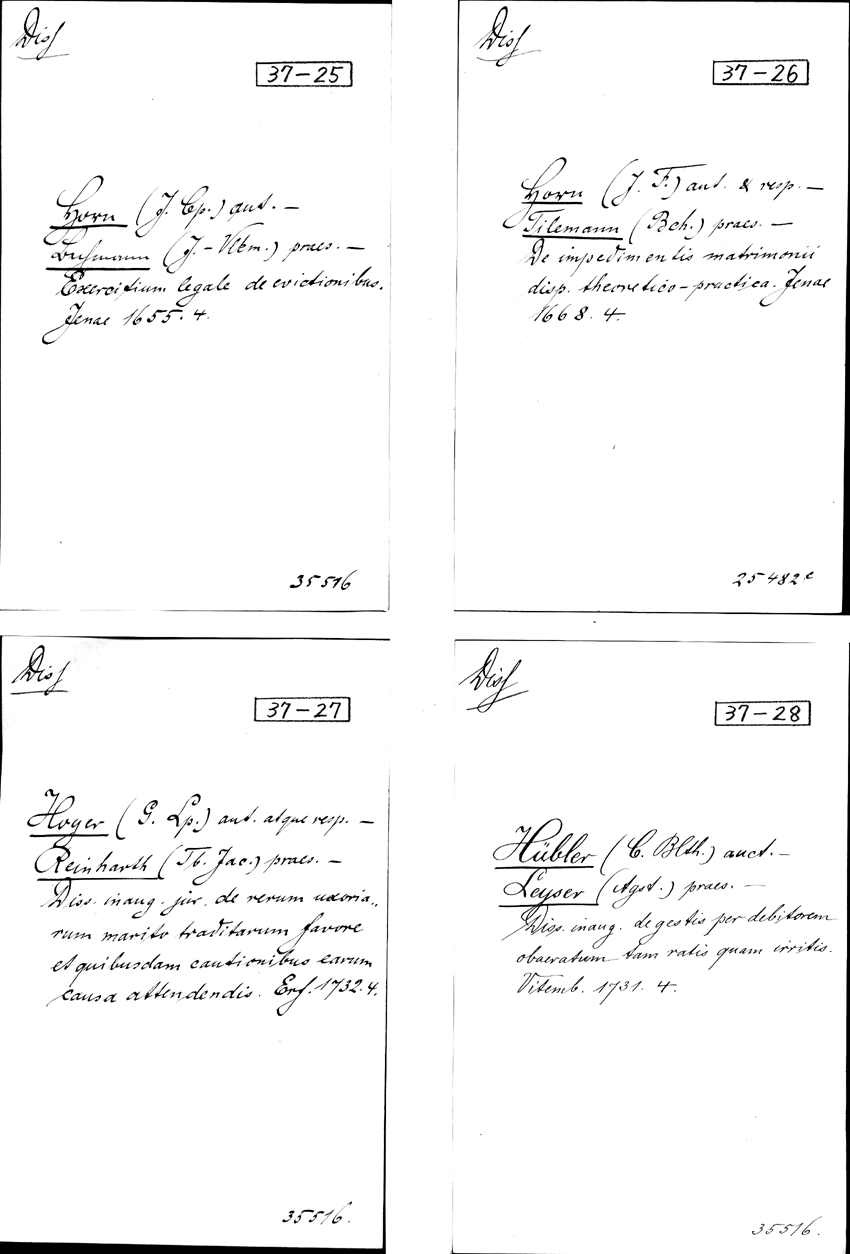 Diss
37-25
Horn (J. Cp.) aut. —
(J.-Vlkm.) praes. —
Exercitium legale de evictionibus.
Jenae 1655. 4.
35516
Diss
37-26
Horn (J. F.) aut. & resp. —
Tilemann (Bch.) praes. —
De impedimentis matrimonii
disp. theoretico-practica. Jenae
1668. 4.
25482c
Diss
37-27
Hoyer (G. Lp.) aut. atque resp. —
Reinharth (Tb. Jac.) praes. —
Diss. inaug. jur. de rerum uxoria„
rum marito traditarum favore
et quibusdam cautionibus earum
causa attendendis. Erf. 1732. 4.
35516.
Diss
37-28
Hübler (C. Blth.) auct. —
Leyser (Agst.) praes. —
Diss. inaug. de gestis per debitorem
obaeratum tam ratis quam irritis.
Vitemb. 1731. 4.
35516.